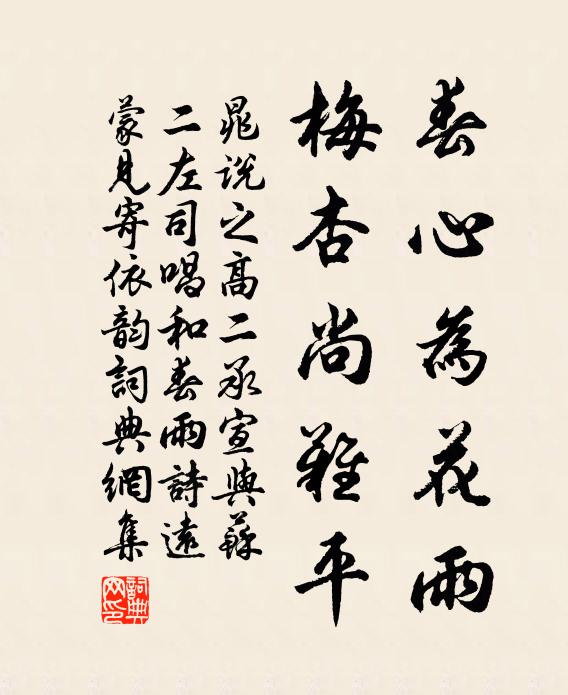 春心為花雨
梅杏尚難平
晁說之高二承宣與蘇
二左司唱和春雨詩遠
蒙見寄依韵詞典網集
詞典
网印